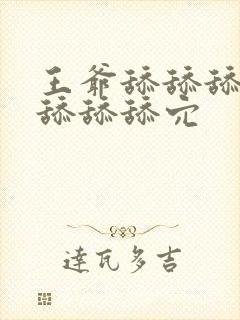 王爷舔舔舔
舔舔舔穴
達瓦多吉